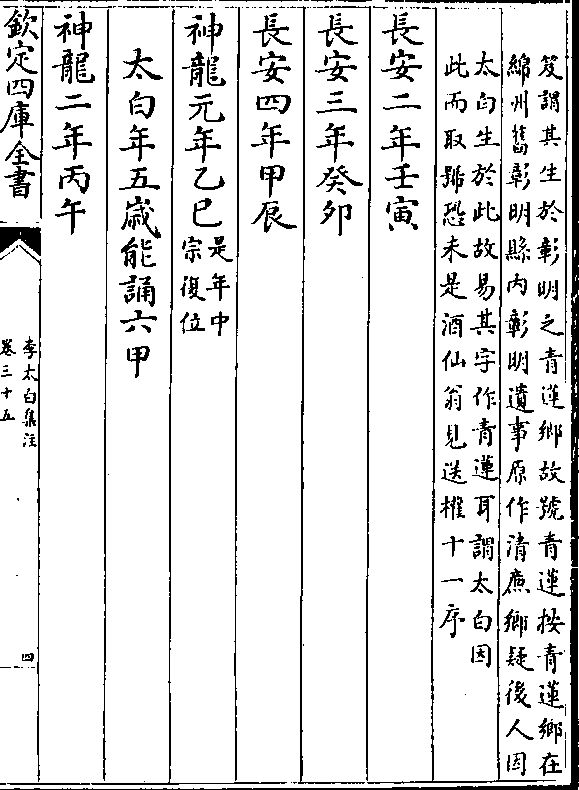 笈謂其生於彰明之青蓮鄉故號青蓮按青蓮鄉在
綿州舊彰明縣内彰明遺事原作清廉鄉疑後人因
太白生於此故易其字作青蓮耳謂太白因
此而取號恐未是酒仙翁見送權十一序
長安二年壬寅
長安三年癸卯
長安四年甲辰
神龍元年乙巳是年中
宗復位
太白年五歲能誦六甲
神龍二年丙午
欽定四庫全書
李太白集注
卷三十五
四